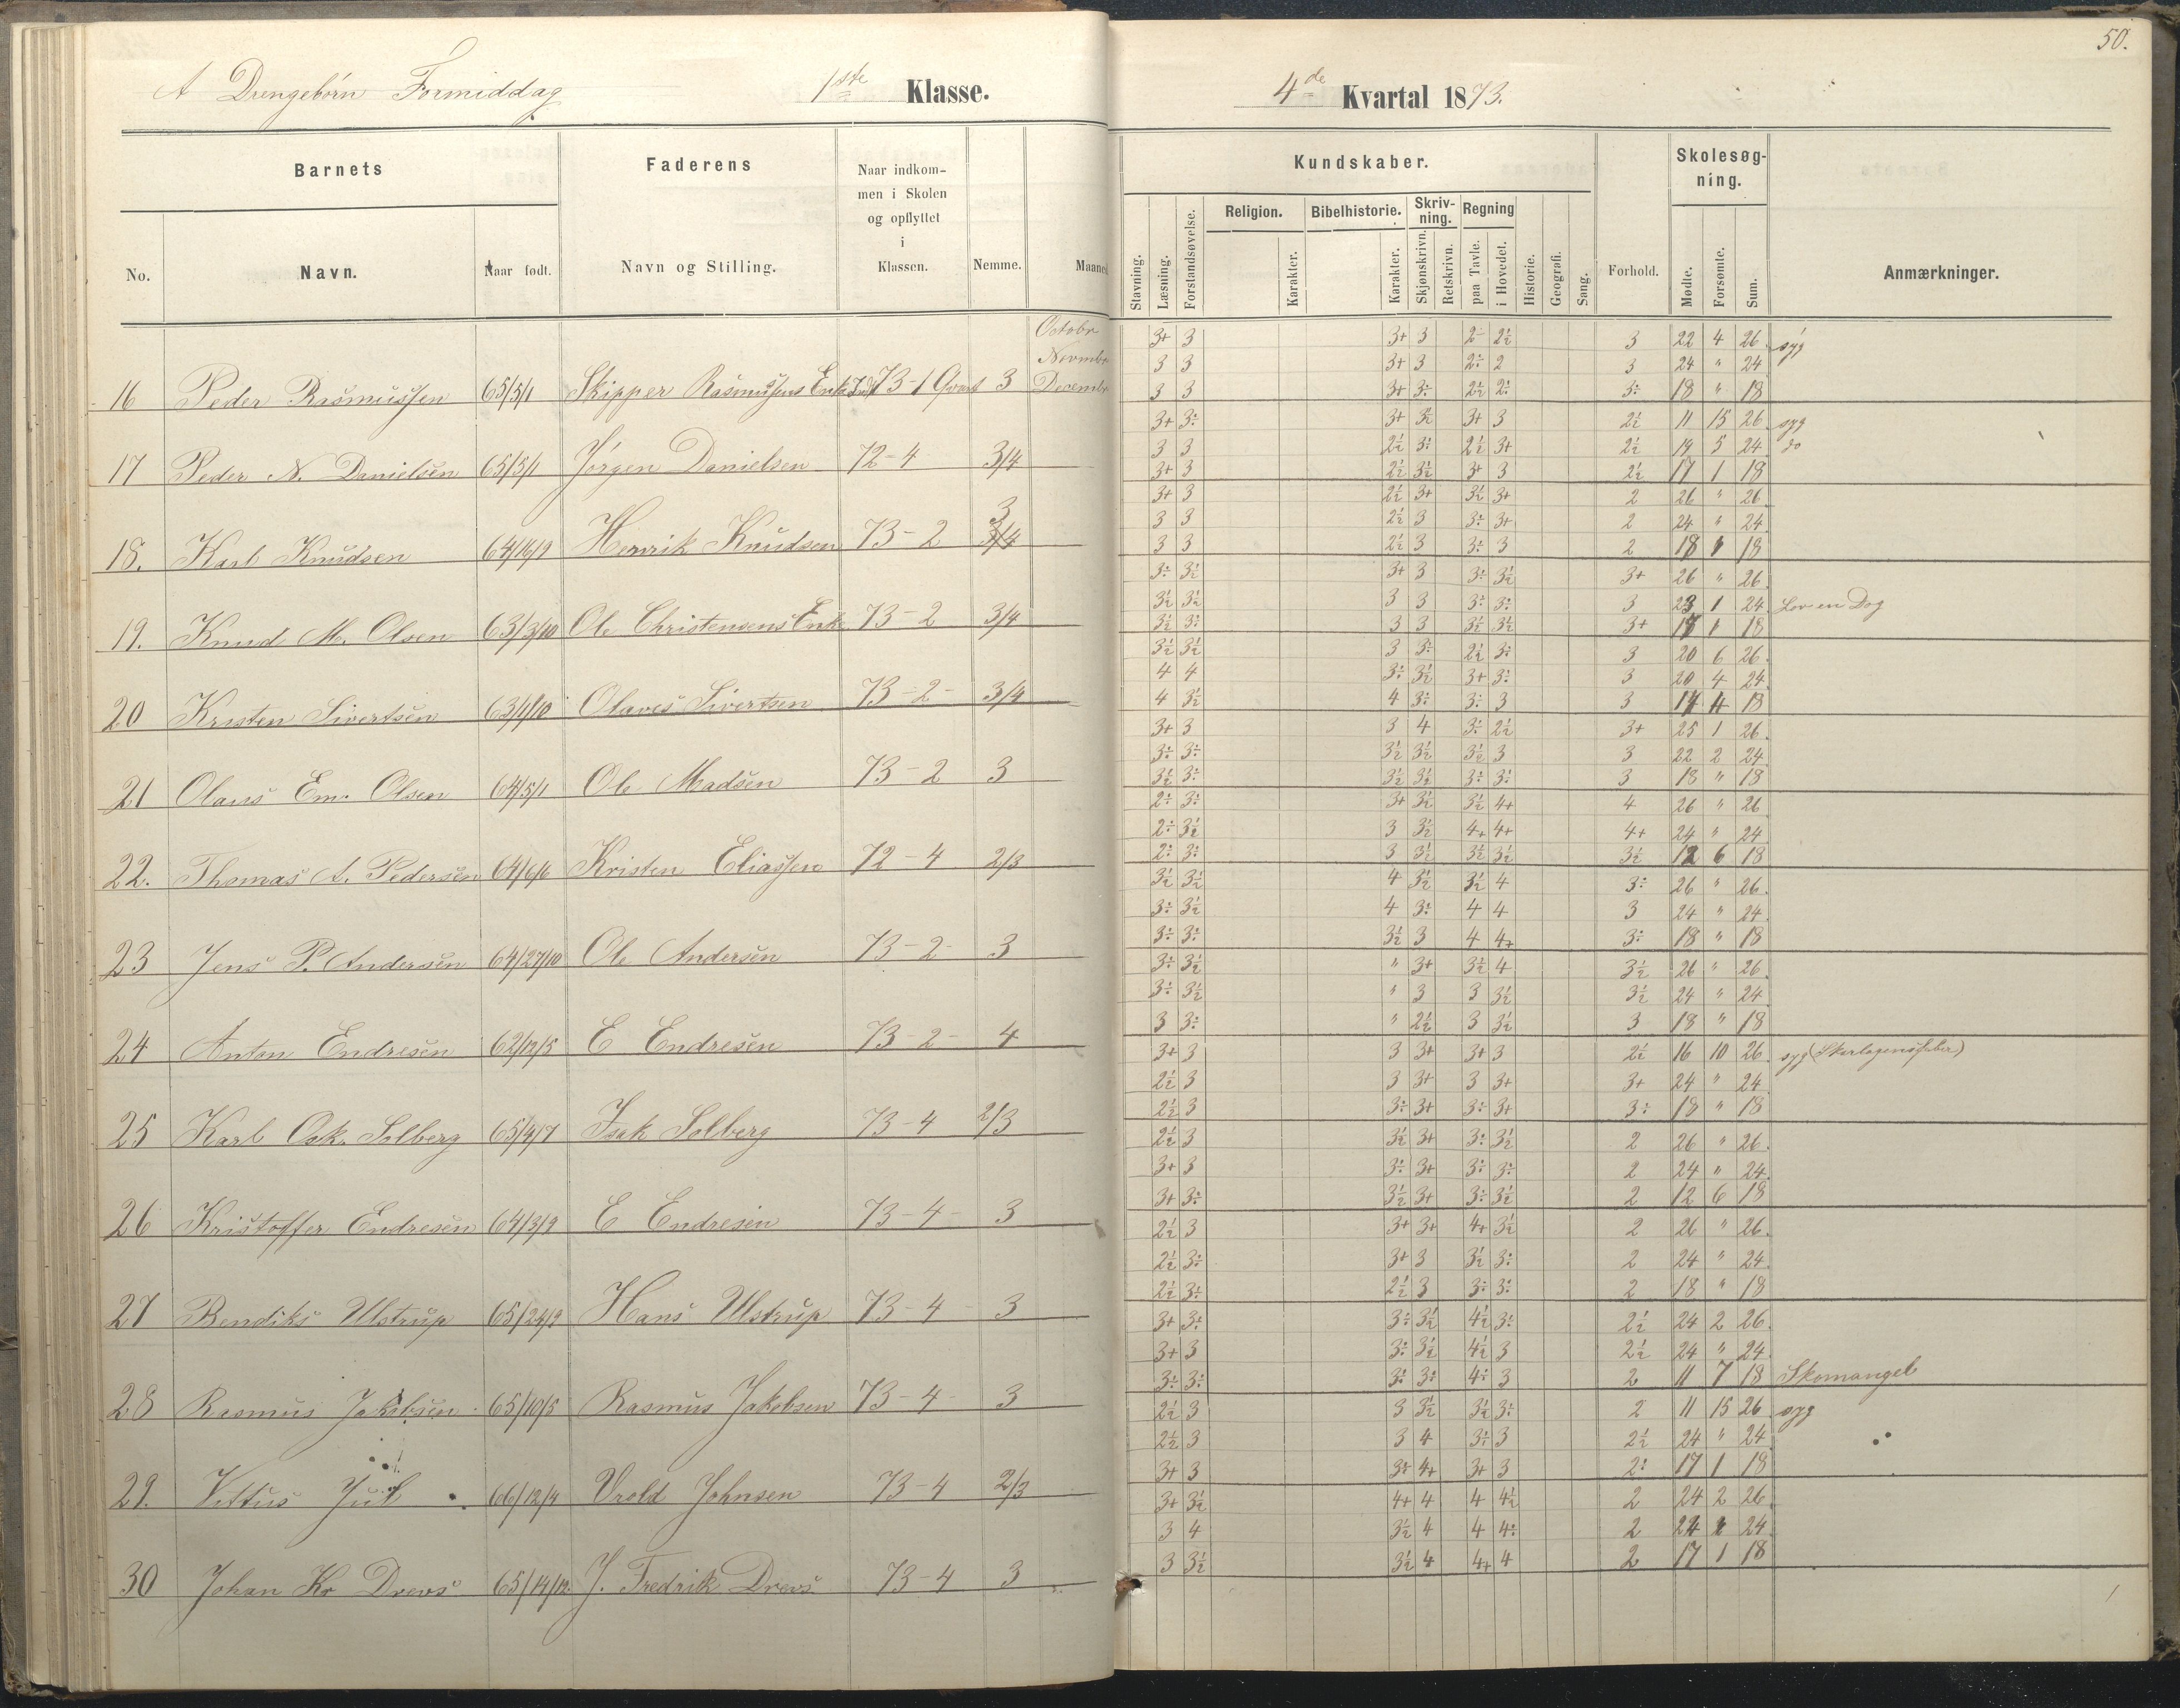 50.
A Drengebörn Formiddag 1ste Klasse. 4de Kvartal 1873.
Barnets Faderens Naar indkommen i Skolen og opflyttet i Klassen. Nemme. Maaned Kundskaber. Forhold. Skolesøgning. Anmærkninger.
No. Navn. Naar født. Navn og Stilling. Stavning. Læsning. Forstandsøvelse. Religion. Karakter. Bibelhistorie. Karakter. Skrivning. Skjønskrivn. Retskrivn. Regning paa Tavle. i Hovedet. Historie. Geografi. Sang. Mødte. Forsømte. Sum.
Octobr 3+ 3 3+ 3 2- 2½ 3 22 4 26 syg
Novmbr 3 3 3+ 3 2÷ 2 3 24 " 24
16 Peder Rasmussen 65/5/1 Skipper Rasmussens Enke 73-1 Qvart 3 Decembr 3 3 3+ 3÷ 2½ 2÷ 3÷ 18 " 18
3+ 3÷ 3+ 3½ 3+ 3 2½ 11 15 26 syg
3 3 2½ 3÷ 2½ 3+ 2½ 19 5 24 do
17 Peder N. Danielsen 65/5/1 Jörgen Danielsen 72-4 3/4 3+ 3 2½ 3½ 3+ 3 2½ 17 1 18
3+ 3 2½ 3+ 3½ 3+ 2 26 " 26
3 3 2½ 3 3÷ 3+ 2 24 " 24
18. Karl Knudsen 64/16/9 Henrik Knudsen 73-2 3 3 3 2½ 3 3÷ 3 2 18 18
3÷ 3½ 3+ 3 3÷ 3½ 3+ 26 " 26
3½ 3½ 3 3 3÷ 3÷ 3 23 1 24 Lov en Dag
19. Knud M. Olsen 63/3/10 Ole Christensens Enke 73-2 3/4 3½ 3÷ 3 3 3½ 3½ 3+ 17 1 18
3½ 3½ 3 3÷ 2½ 3÷ 3 20 6 26
4 4 3÷ 3½ 3+ 3÷ 3 20 4 24
20 Kristen Sivertsen 63/1/10 Olaves Sivertsen 73-2- 3/4 4 3½ 4 3÷ 3÷ 3 3 14 4 18
3+ 3 3 4 3÷ 2½ 3+ 25 1 26
3÷ 3÷ 3½ 3½ 3½ 3 3 22 2 24
21 Olaus Em. Olsen 64/5/1 Ole Madsen 73-2 3 3½ 3÷ 3½ 3½ 3÷ 3÷ 3 18 " 18
2÷ 3÷ 3+ 3½ 3½ 4+ 4 26 " 26
2÷ 3½ 3 3½ 4+ 4+ 4+ 24 " 24
22. Thomas A. Pedersen 64/6/6 Kristen Eliassen 72-4 2/3 2÷ 3÷ 3 3½ 3½ 3½ 3½ 12 6 18
3½ 3½ 4 3½ 3½ 4 3÷ 26 " 26
3÷ 3½ 4 3÷ 4 4 3 24 " 24
23 Jens P. Andersen 64/27/10 Ole Andersen 73-2- 3 3÷ 3÷ 3½ 3 4 4+ 3÷ 18 " 18
3÷ 3½ " 3+ 3½ 4 3½ 26 " 26
3÷ 3½ " 3 3 3½ 3½ 24 " 24
24 Anton Endresen 62/12/5 E Endresen 73-2- 4 3 3÷ " 2½ 3 3½ 3 18 " 18
3+ 3 3 3+ 3+ 3 2½ 16 10 26 syg (Skarlagensfeber)
2½ 3 3 3+ 3 3+ 3+ 24 " 24
25 Karl Osk. Solberg 65/4/7 Isak Solberg 73-4 2/3 2½ 3 3÷ 3+ 3÷ 3+ 3÷ 18 " 18
2½ 3 3½ 3+ 3÷ 3½ 2 26 " 26
3+ 3 3÷ 3+ 3÷ 3÷ 2 24 " 24
26 Kristoffer Endresen 64/3/9 E Endresen 73-4- 3 3+ 3÷ 3½ 3+ 3÷ 3½ 2 12 6 18
2½ 3 3+ 3+ 4+ 3½ 2 26 " 26
2½ 3÷ 3+ 3 3½ 3÷ 2 24 " 24
27 Bendiks Ulstrup 65/24/9 Hans Ulstrup 73-4- 3 2½ 3÷ 2½ 3 3÷ 3÷ 2 18 " 18
3+ 3÷ 3÷ 3½ 4½ 3÷ 2½ 24 2 26
3+ 3 3÷ 3½ 4½ 3 2½ 24 " 24
28 Rasmus Jakobsen 65/10/5 Rasmus Jakobsen 73-4- 3 3÷ 3÷ 3÷ 3÷ 4÷ 3 2 11 7 18 Skomangel
2½ 3 3 3½ 3½ 3÷ 2 11 15 26 syg
2½ 3 3 4 3÷ 3 2½ 24 " 24
29. Vittus Jul 66/12/4 Vrold Johnsen 73-4 2/3 3+ 3 3÷ 4+ 3+ 3 2÷ 17 1 18
3+ 3½ 4+ 4 4 4½ 2 24 2 26
3 4 3½ 4 4 4÷ 2 24 24
30 Johan Kr Drevs 65/14/12 J. Fredrik Drevs 73-4 3 3 3½ 3½ 4 4+ 4 2 17 1 18